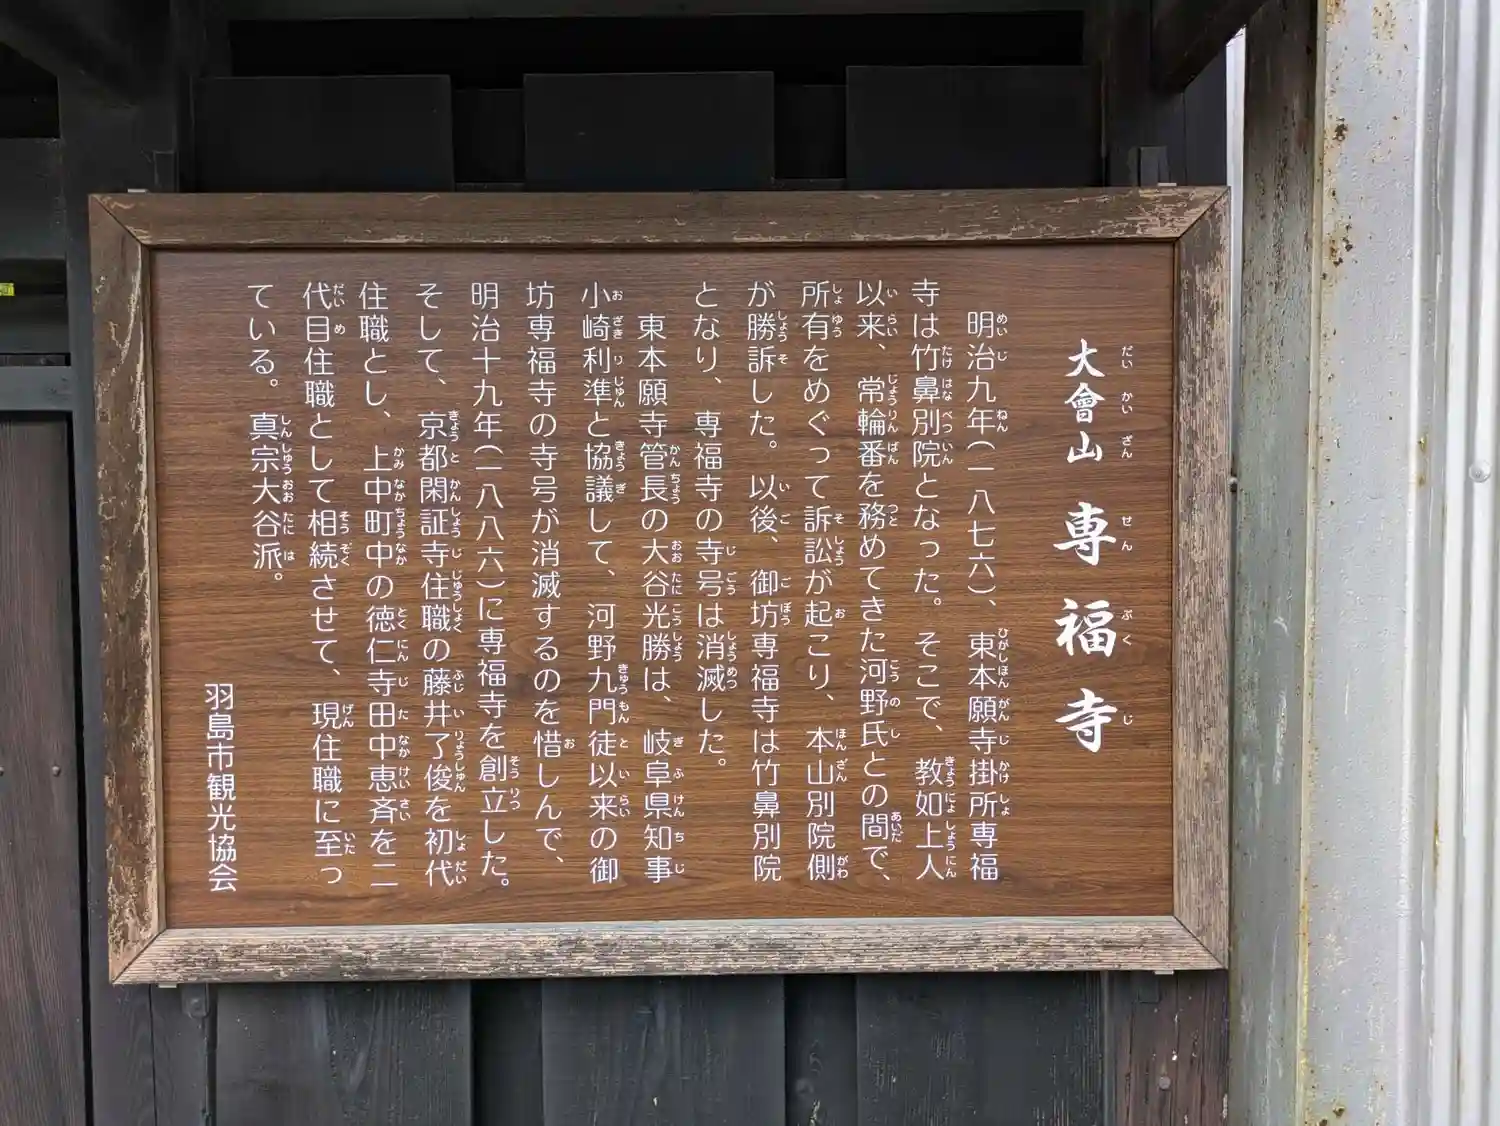 大會山 専福寺
明治九年(一八七六)、東本願寺掛所専福
寺は竹鼻別院となった。そこで、教如上人
以来、常輪番を務めてきた河野氏との間で、
所有をめぐって訴訟が起こり、本山別院側
が勝訴した。以後、御坊専福寺は竹鼻別院
となり、専福寺の寺号は消滅した。
東本願寺管長の大谷光勝は、岐阜県知事
小崎利準と協議して、河野九門徒以来の御
坊専福寺の寺号が消滅するのを惜しんで、
明治十九年(一八八六)に専福寺を創立した。
そして、京都閑証寺住職の藤井了俊を初代
住職とし、上中町中の徳仁寺田中恵斉を二
代目住職として相続させて、現住職に至っ
ている。真宗大谷派。
羽島市観光協会